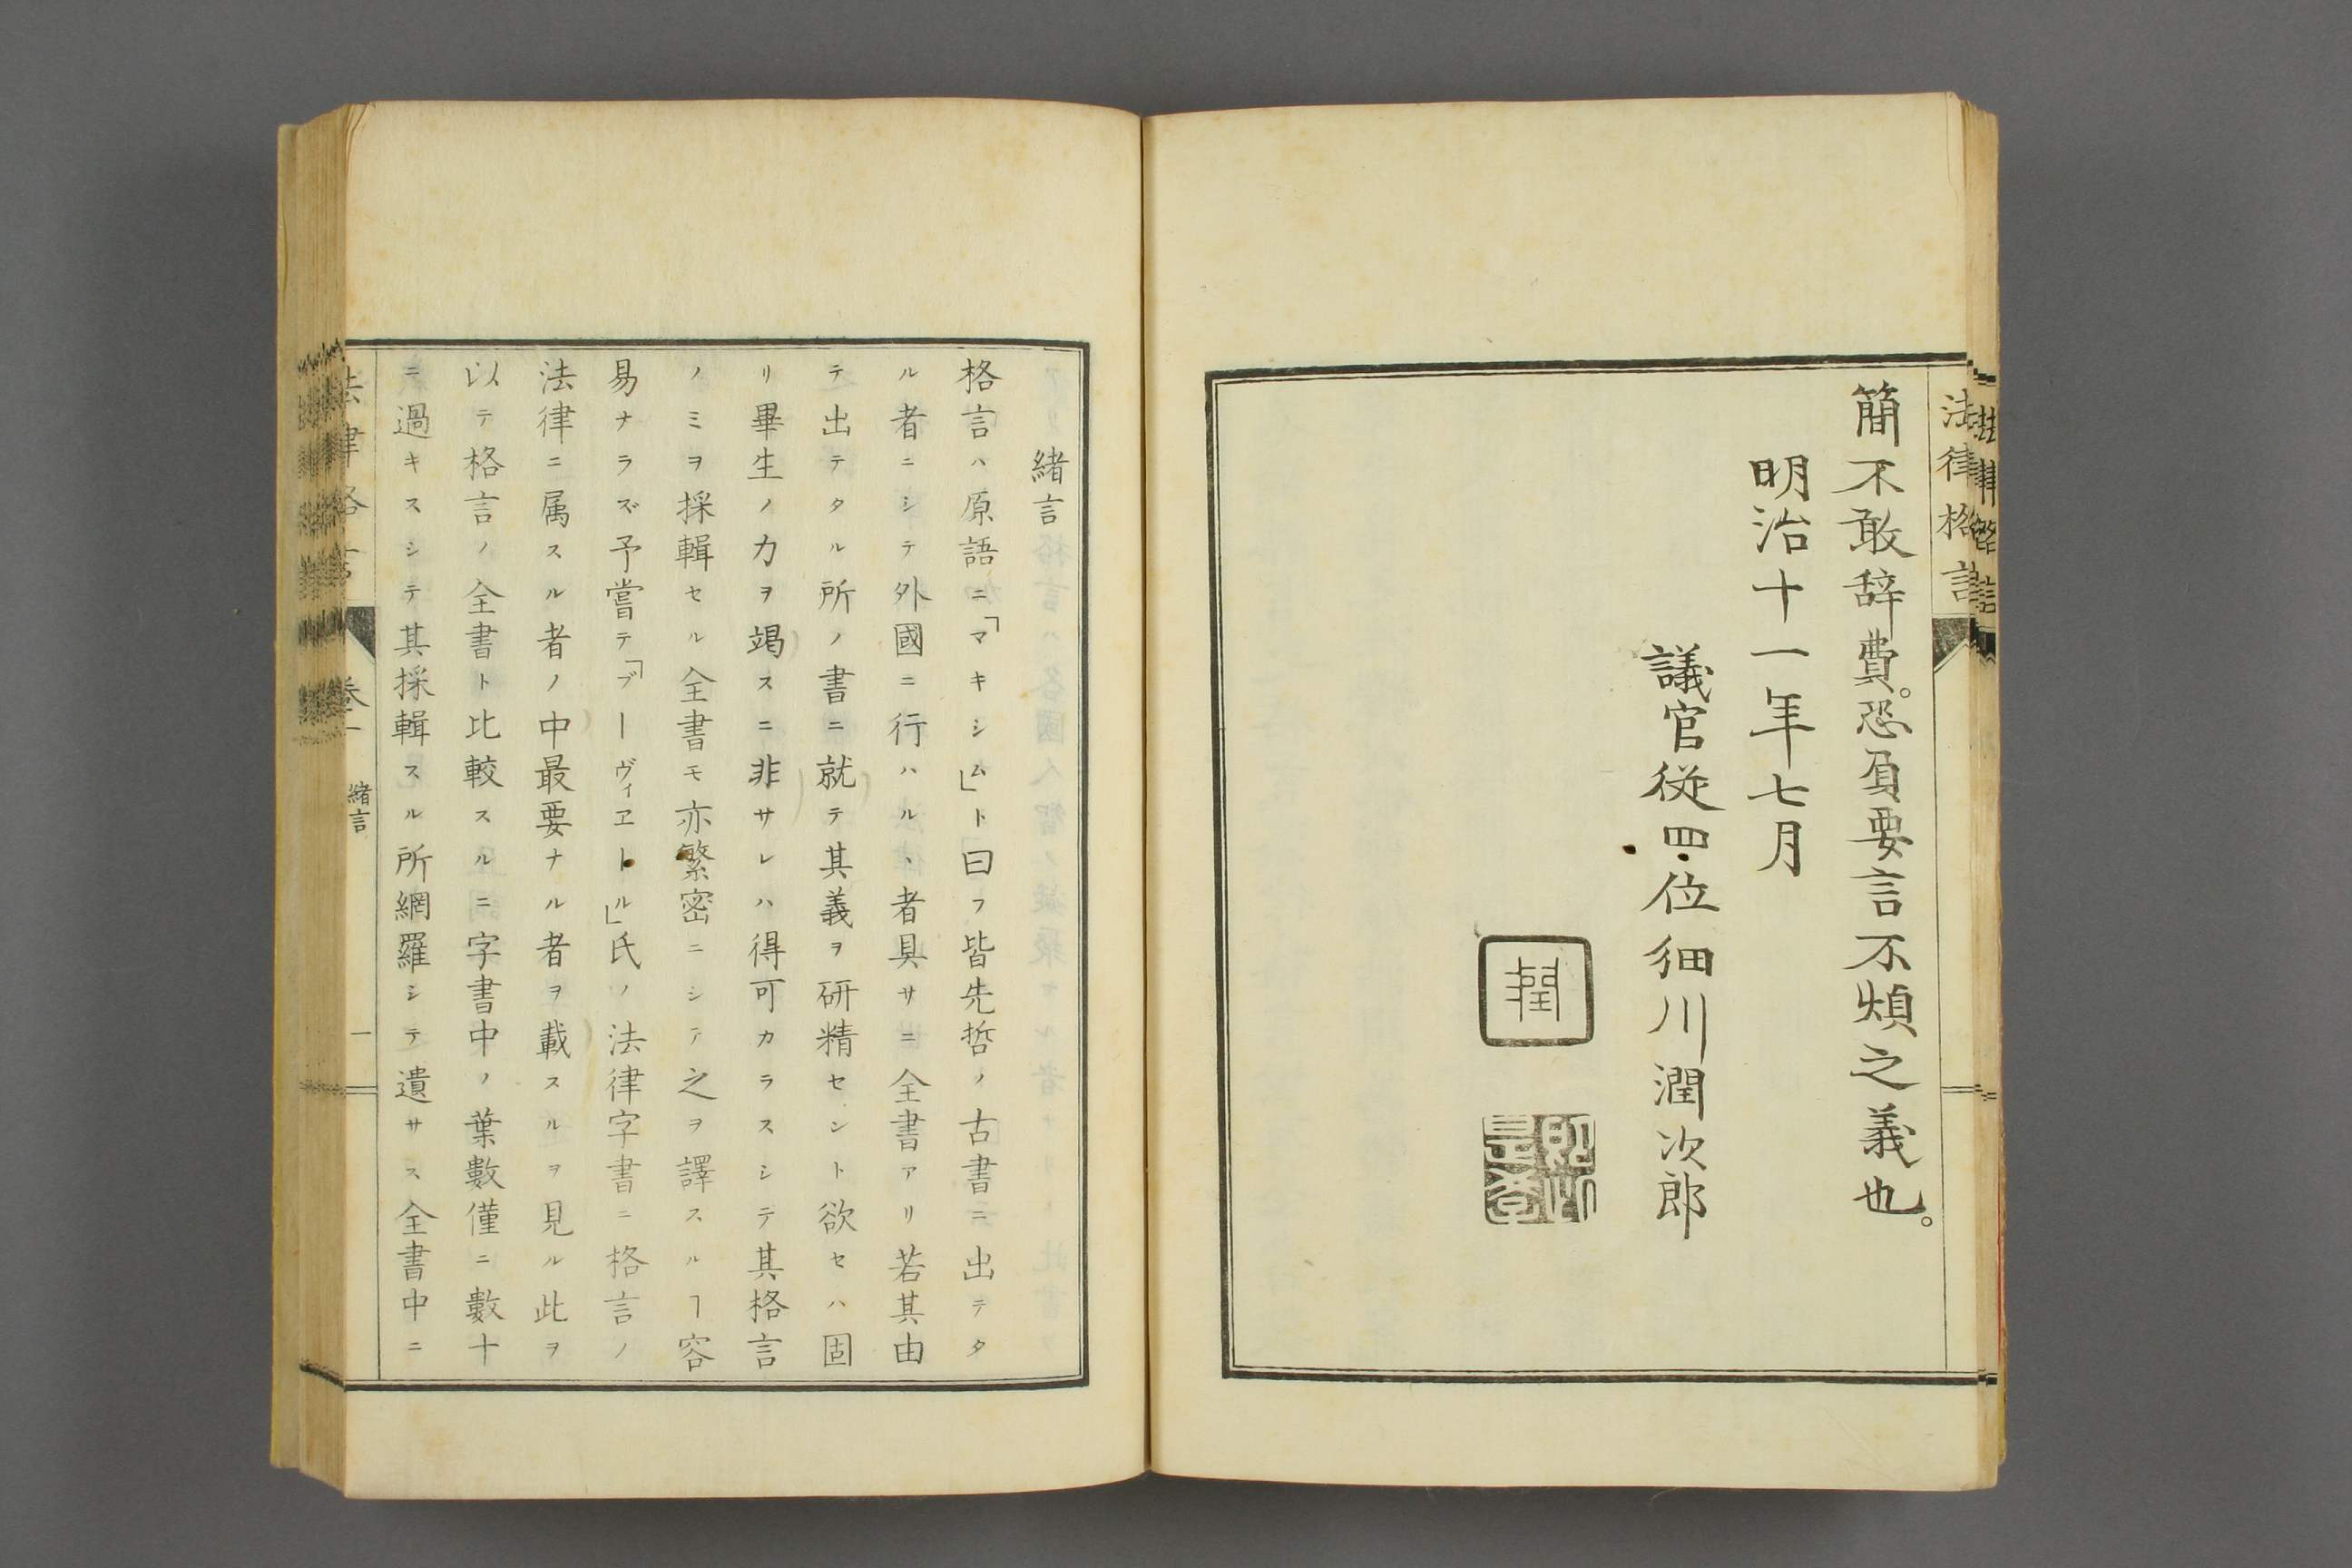 法律格言
簡不敢辞費。恐負要言不煩之義也。
明治十一年七月
議官従四位細川潤次郎
潤
緒言
格言ハ原語ニ「マキシム」ト曰フ皆先哲ノ古書ニ出テタ
ル者ニシテ外國ニ行ハル、者具サニ全書アリ若其由
テ出テタル所ノ書ニ就テ其義ヲ研精セント欲セハ固
リ畢生ノ力ヲ竭スニ非サレハ得可カラスシテ其格言
ノミヲ採輯セル全書モ亦繁密ニシテ之ヲ譯スルヿ容
易ナラズ予嘗テ「ブーヴィヱトル」氏ノ法律字書ニ格言ノ
法律ニ属スル者ノ中最要ナル者ヲ載スルヲ見ル此ヲ
以テ格言ノ全書ト比較スルニ字書中ノ葉數僅ニ數十
ニ過キスシテ其採輯スル所網羅シテ遺サス全書中ニ
法律格言
卷一
緒言
一